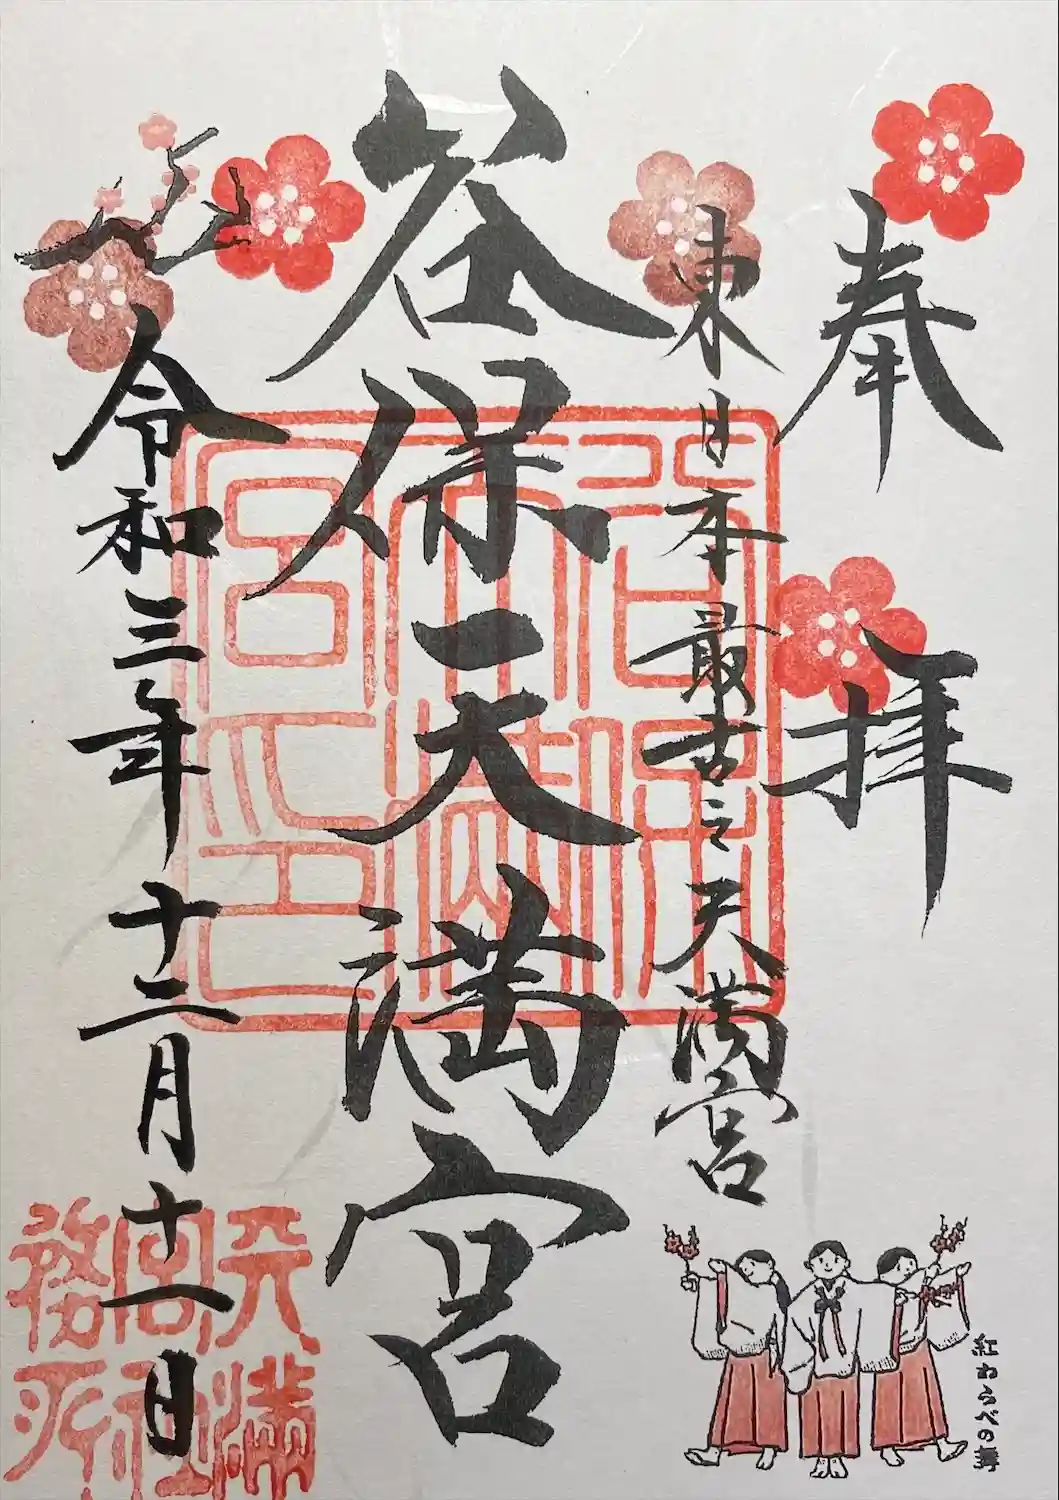 奉拝
東日本最古之天満宮
谷保天満宮
令和三年十二月十一日
谷保
天満
宮印
天満
宮社
務所
紅わらべの舞